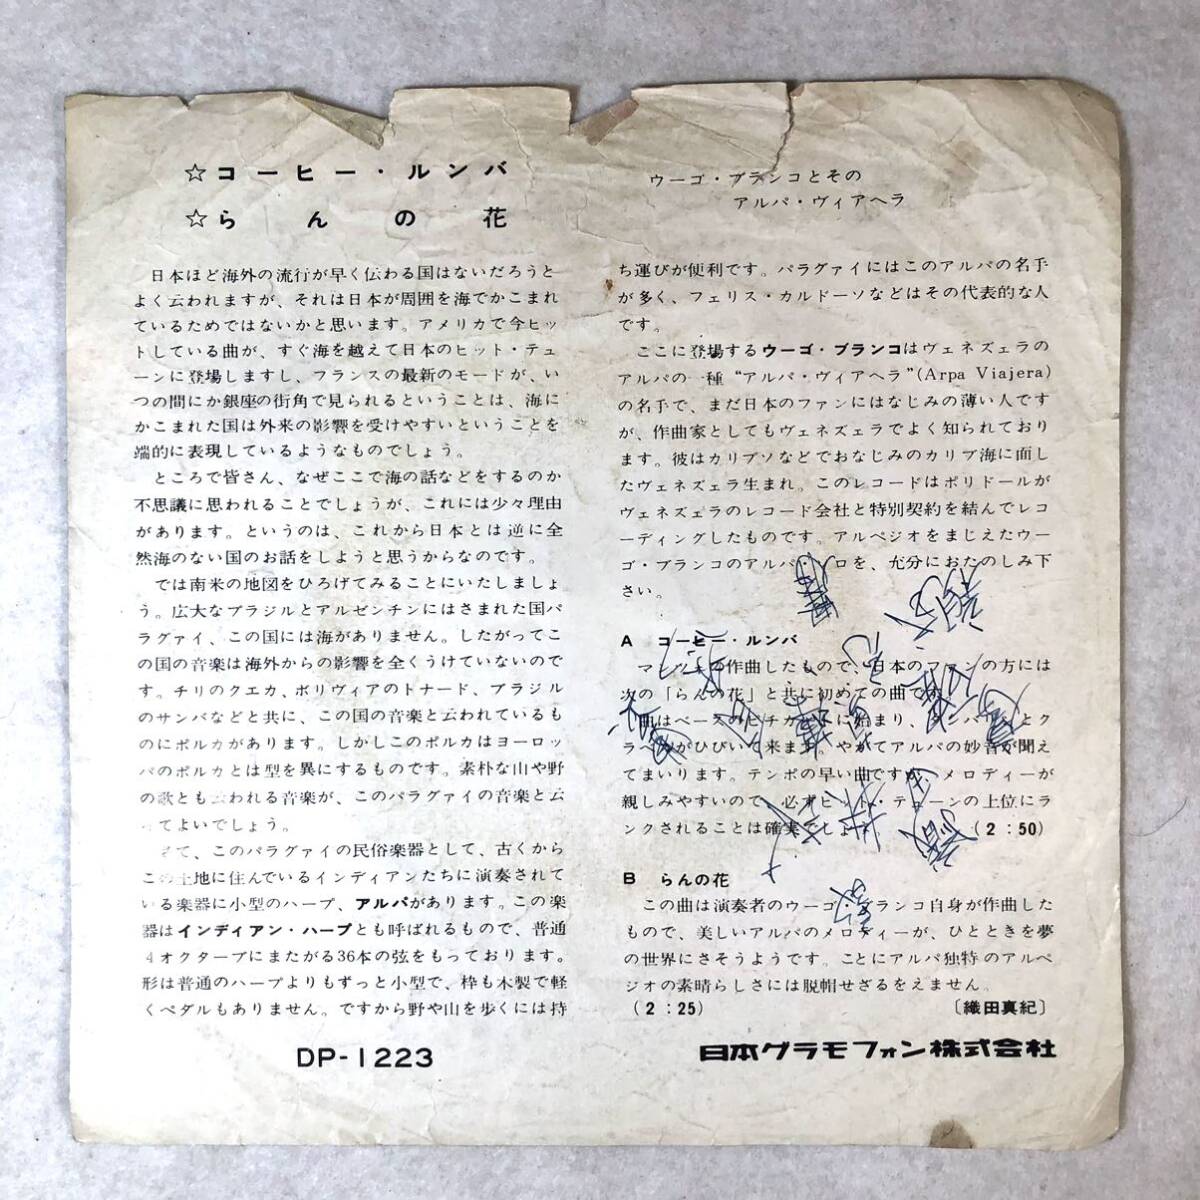 ☆コーヒー・ルンバ
☆らんの花
ウーゴ・ブランコとその
アルパ・ヴィアヘラ
日本ほど海外の流行が早く伝わる国はないだろうと
よく云われますが、それは日本が周囲を海でかこまれ
ているためではないかと思います。アメリカで今ヒッ
トしている曲が、すぐ海を越えて日本のヒット・テュ
ーンに登場しますし、フランスの最新のモードが、い
つの間にか銀座の街角で見られるということは、海に
かこまれた国は外来の影響を受けやすいということを
端的に表現しているようなものでしょう。
ところで皆さん、なぜここで海の話などをするのか
不思議に思われることでしょうが、これには少々理由
があります。というのは、これから日本とは逆に全
然海のない国のお話をしようと思うからなのです。
では南米の地図をひろげてみることにいたしましょ
う。広大なブラジルとアルゼンチンにはさまれた国パ
ラグァイ、この国には海がありません。したがってこ
の国の音楽は海外からの影響を全くうけていないので
す。チリのクエカ、ボリヴィアのトナード、ブラジル
のサンバなどと共に、この国の音楽と云われているも
のにポルカがあります。しかしこのポルカはヨーロッ
パのポルカとは型を異にするものです。素朴な山や野
の歌とも云われる音楽が、このパラグァイの音楽と云
ってよいでしょう。
さて、このパラグァイの民俗楽器として、古くから
この土地に住んでいるインディアンたちに演奏されて
いる楽器に小型のハープ、アルパがあります。この楽
器はインディアン・ハープとも呼ばれるもので、普通
4オクターブにまたがる36本の弦をもっております。
形は普通のハープよりもずっと小型で、枠も木製で軽
くペダルもありません。ですから野や山を歩くには持
ち運びが便利です。パラグァイにはこのアルパの名手
が多く、フェリス・カルドーソなどはその代表的な人
です。
ここに登場するウーゴ・ブランコはヴェネズェラの
アルパの一種“アルパ・ヴィアヘラ”(Arpa Viajera)
の名手で、まだ日本のファンにはなじみの薄い人です
が、作曲家としてもヴェネズェラでよく知られており
ます。彼はカリプソなどでおなじみのカリブ海に面し
たヴェネズェラ生まれ。このレコードはポリドールが
ヴェネズェラのレコード会社と特別契約を結んでレコ
ーディングしたものです。アルペジオをまじえたウー
ゴ・ブランコのアルパ・ソロを、充分におたのしみ下
さい。
A コーヒー・ルンバ
マンソの作曲したもので、日本のファンの方には
次の「らんの花」と共に初めての曲です。
曲はベースのピチカートに始まり、
がひびいて来ます。やがてアルパの妙音が聞え
てまいります。テンポの早い曲ですが、メロディーが
親しみやすいので、必ずヒット・テューンの上位にラ
ンクされることは確実でしょう。 (2：50)
B らんの花
この曲は演奏者のウーゴ・ブランコ自身が作曲した
もので、美しいアルパのメロディーが、ひとときを夢
の世界にさそうようです。ことにアルパ独特のアルペ
ジオの素晴らしさには脱帽せざるをえません。
(2：25) 〔織田真紀〕
DP-1223
日本グラモフォン株式会社